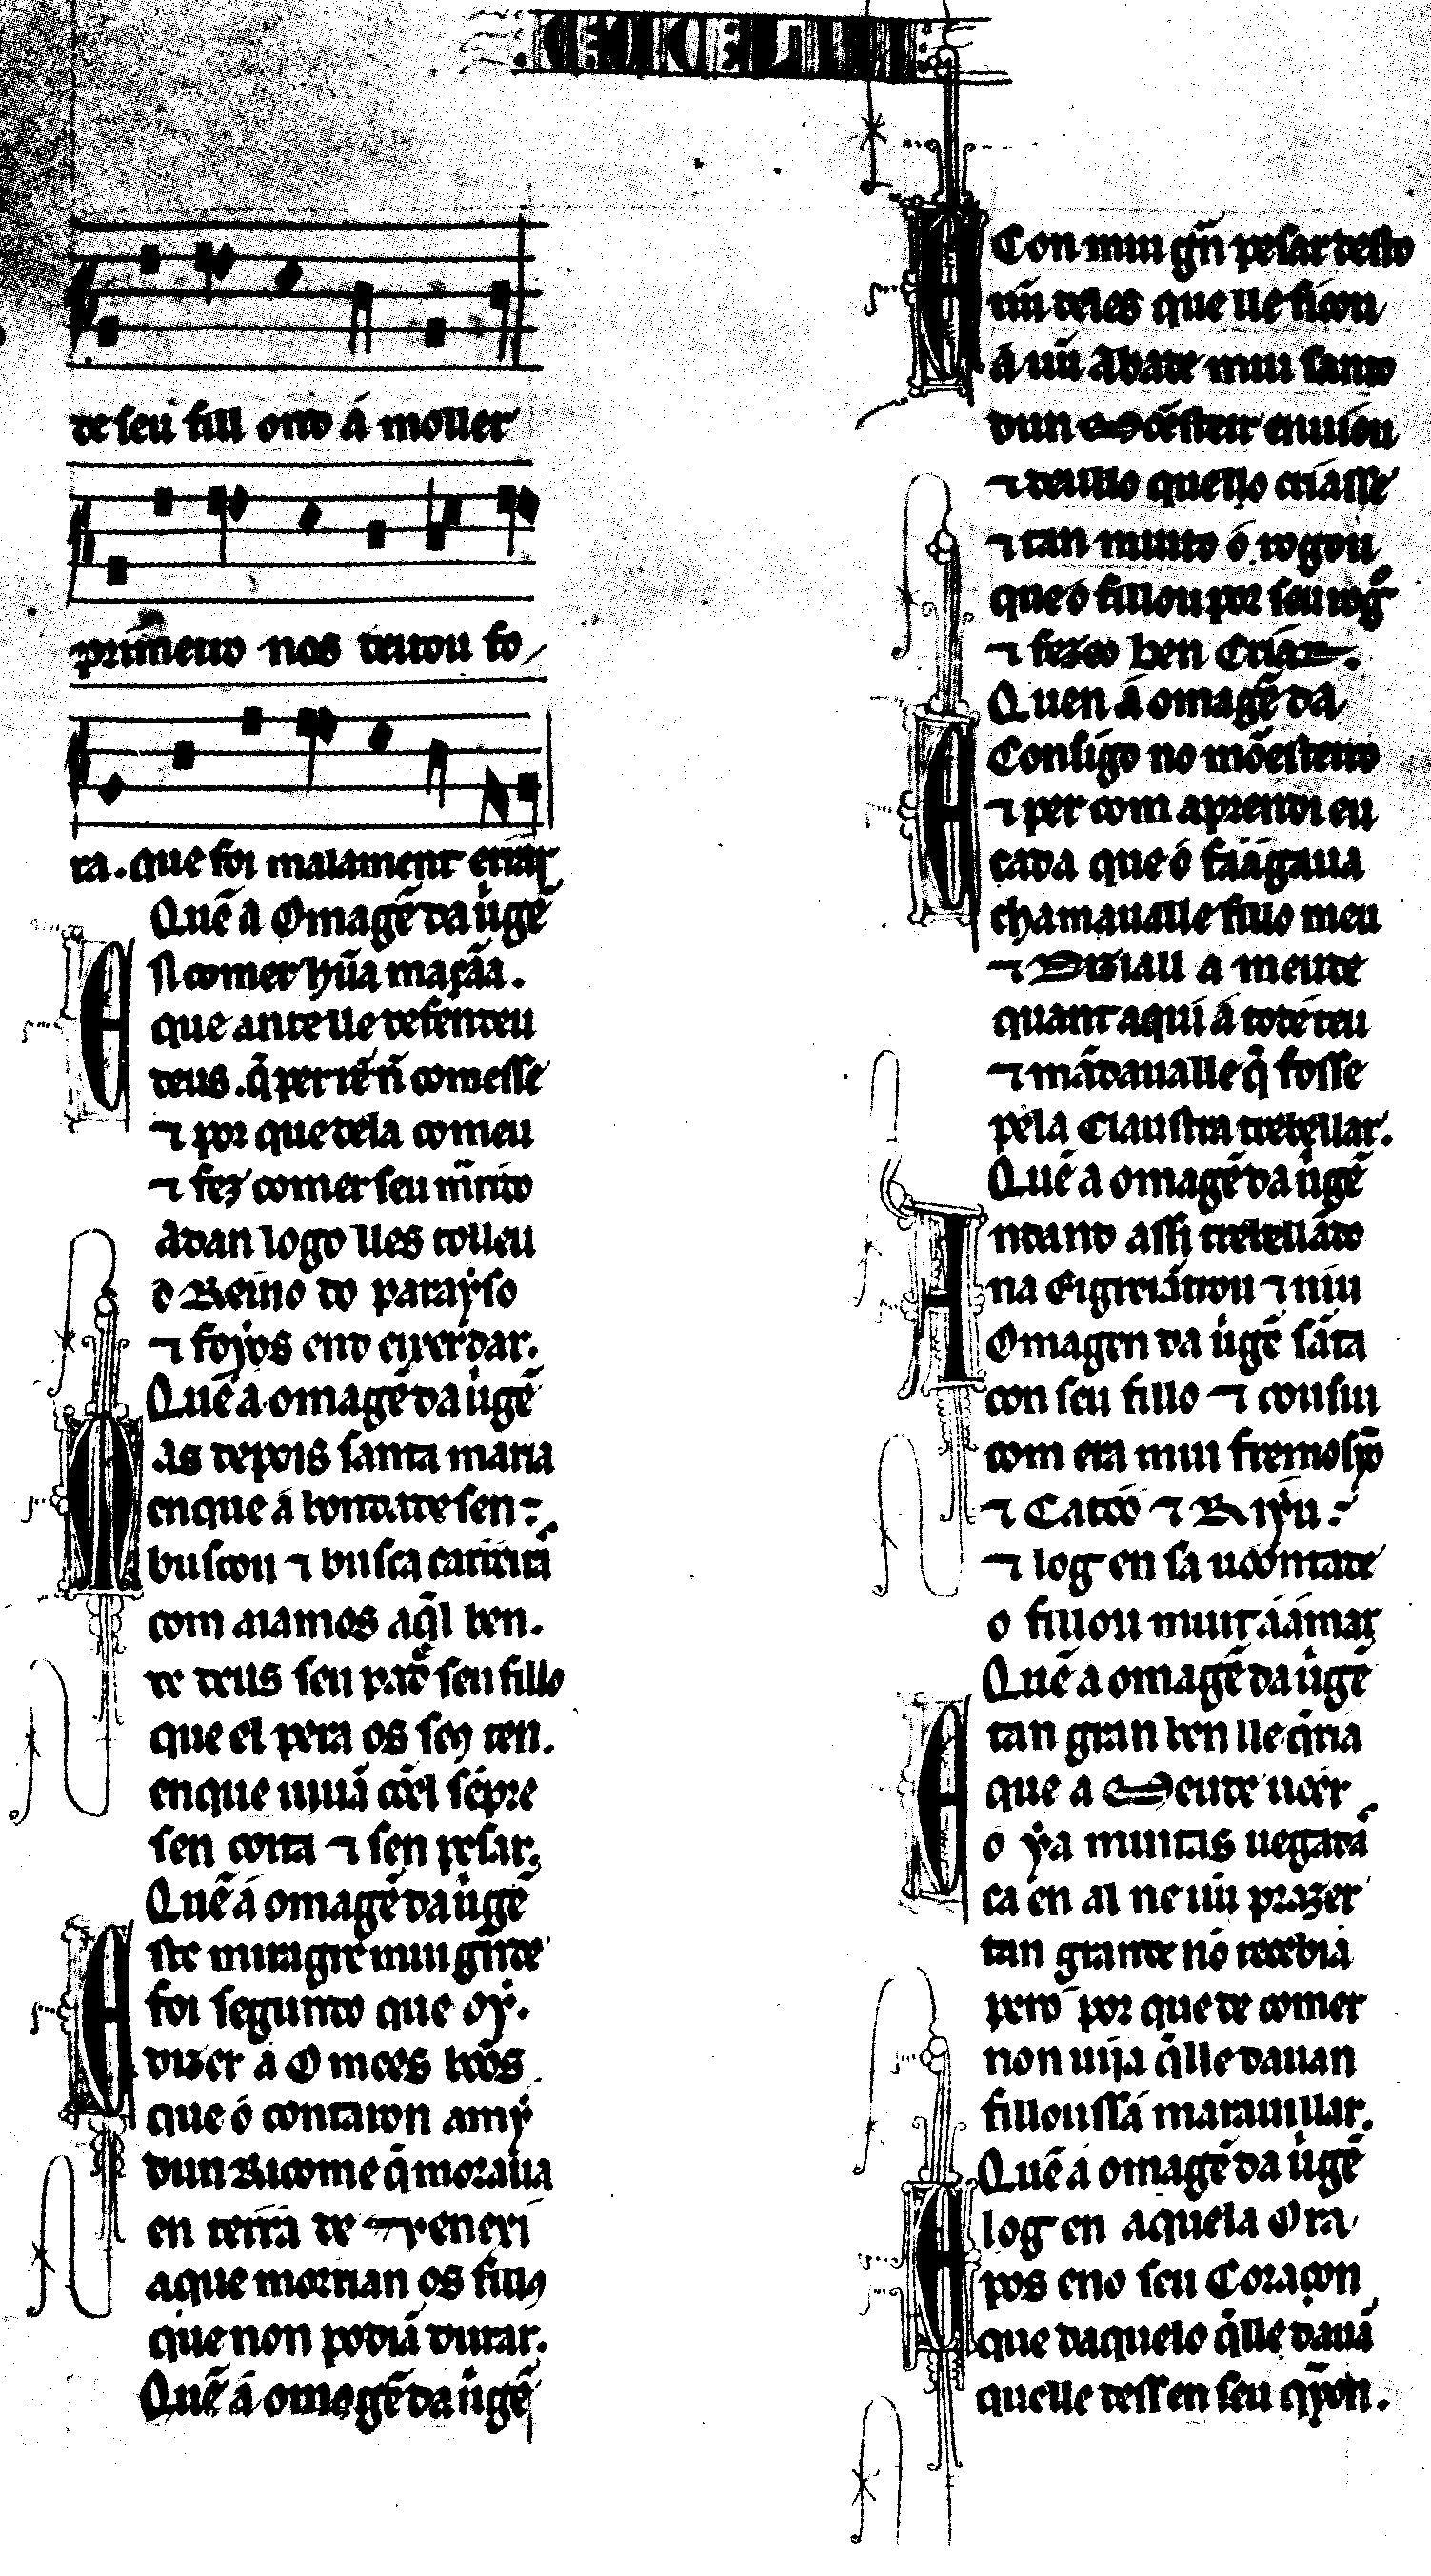 de seu fill onrrad á moller
primeiro nos tirou fo/
ra. que foi malament errar
Quẽ a Omagẽ da uirgẽ
En comer hũa maçãa.
que ante lle defendeu
deus. q̃ per rẽ nõ comesse
⁊ por que dela comeu
⁊ fez comer seu m̃rido
adan logo lles tolleu
o Reino do parayso
⁊ foyos end eixerdar.
Quẽ a omagẽ da uirgẽ
Mas depois santa maria
en que á bondade sen
buscou ⁊ busca
com aiamos aq̃l ben.
de deus seu padre seu fillo
que el pera os seus ten.
en que uiuã cõel sẽpre
sen coita ⁊ sen pesar.
Quẽ á omagẽ da uirgẽ
Este miragre mui grãde
foi segundo que oý.
dizer a Omẽes bõos
que ó contaron a my
dun Ricome q̃ moraua
en terra de
a que morrian os fillos
que non podiã durar.
Quẽ á omagẽ da uirgẽ
E Con mui grã pesar desto
ũu deles que lle ficou
á ũu abade mui santo
dun Mõesteir enuiou
⁊ deullo que llo criasse
⁊ tan muito ó rogou
que ó fillou por seu rog
⁊ fezeo ben Criar.
Quen á omagẽ da
E Consigo no mõesteiro
⁊ per com aprendi eu
cada que ó faagaua
chamaualle fillo meu
⁊ Diziall a meude
quant aquí á tod é teu
⁊ mãdaualle q̃ fosse
pela Claustra trebellar.
Quẽ a omagẽ da uirgẽ
Andand assi trebellãdo
na Eigreia ẽtrou ⁊ uiu
Omagen da uirgẽ sãta
con seu fillo ⁊ cousiu
com era mui fremosỹo
⁊ Catóo ⁊
⁊ log en sa uoontade
o fillou muit a amar
Quẽ a omagẽ da uirgẽ
E tan gran ben lle q̃ria
que a Meude ueer
o ya muitas uegadas
ca en al neũu prazer
tan grande nõ recebia
pero por que de comer
non uija q̃ lle dauan
fillouss á marauillar.
Quẽ a omagẽ da uirgẽ
E log en aquela Ora
pos eno seu Coraçon
que daquelo q̃ lle dauã
que lle dess en seu